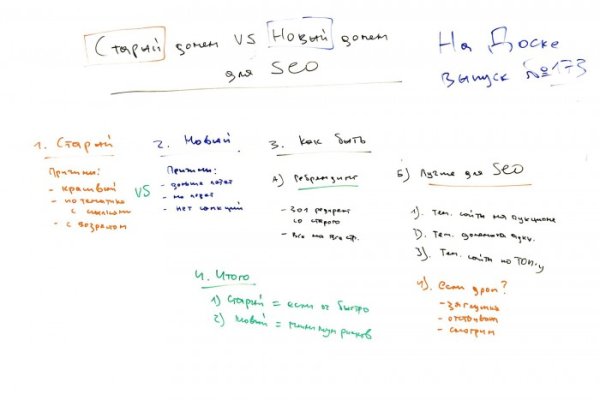 Старый домен VS Новый домен
для SEO
На Доске
Выпуск №173
1. Старый
Причины:
- красивый
- по тематике
с ссылками
- с возрастом
VS
2. Новый
Причины:
- дольше
- нет санкций
3. Как быть
А) Ребрендинг
- 301 редирект
со старого
- Все на все стр.
Б) Лучше для SEO
1). Тем. сайты на аукционе
2). Тем. домена аукц.
3). Тем. сайты по ТОП-у
4). Если дроп?
- заглушка
- отстоивать
- смотрим
4. Итого
1) Старый = если ок быстро
2) Новый = минимум рисков